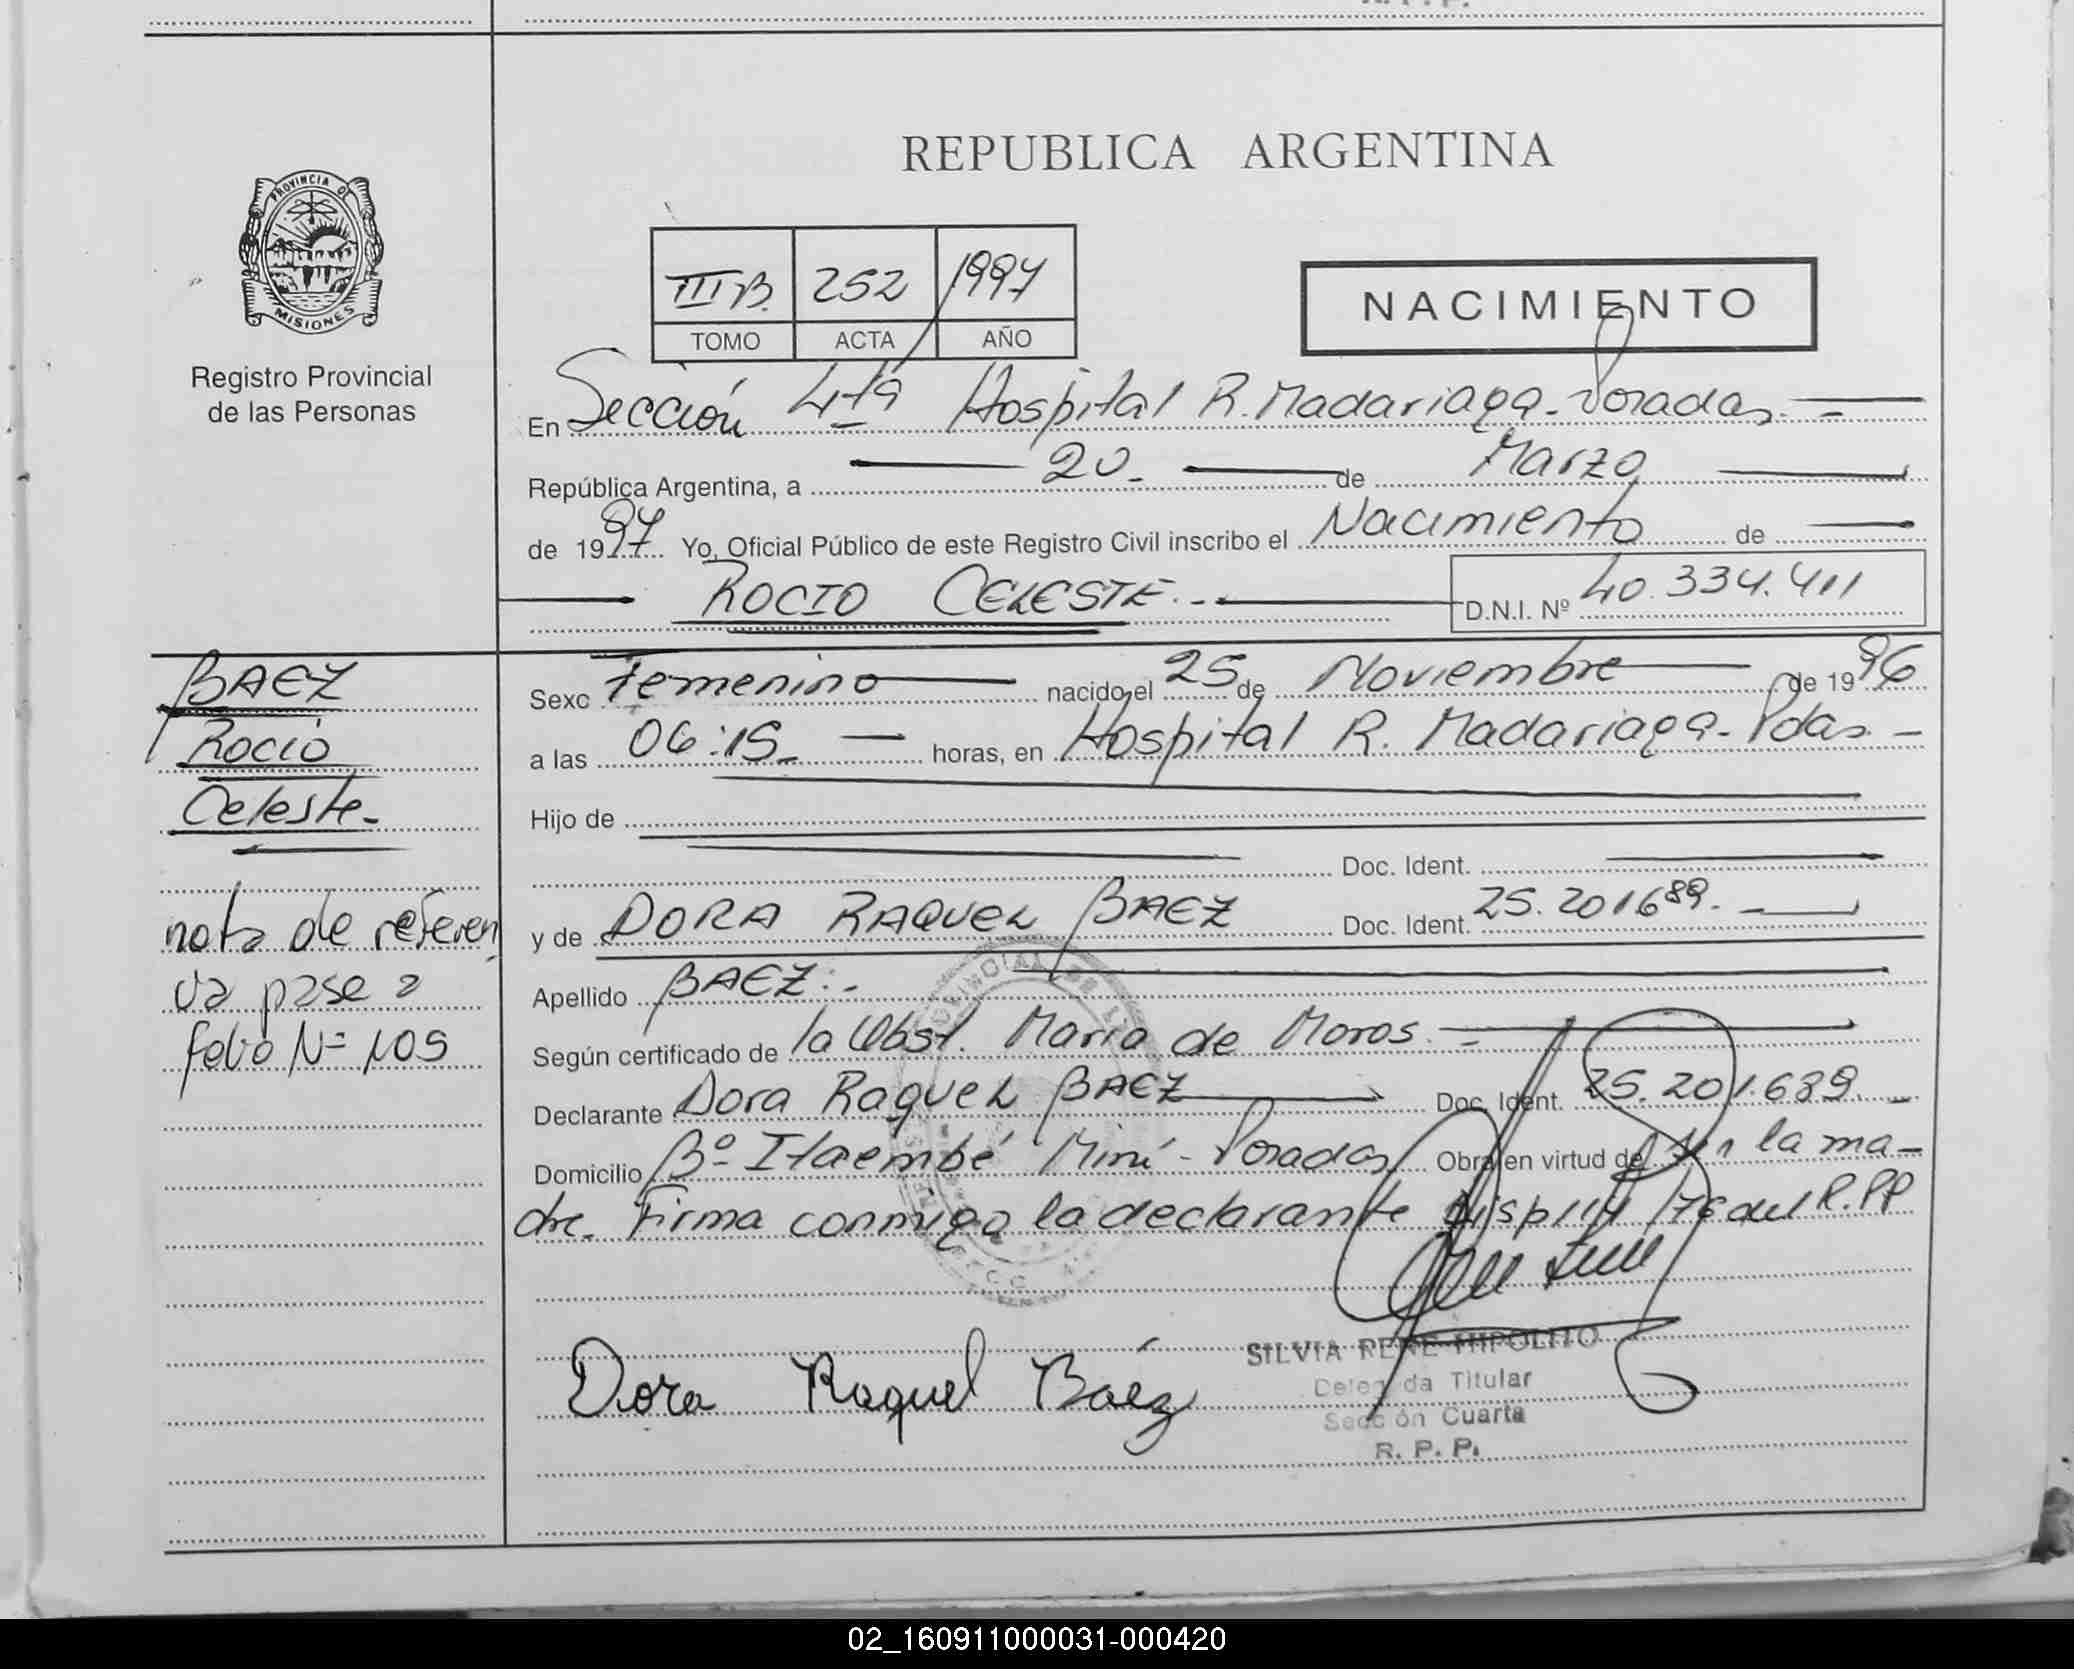 REPUBLICA ARGENTINA
PROVINCIA DE
MISIONES
Registro Provincial
de las Personas
III B. 252 1997
TOMO ACTA AÑO
NACIMIENTO
En Sección 4ta Hospital R. Madariaga - Posadas. -
República Argentina, a 20 - de Marzo
de 1997 Yo, Oficial Público de este Registro Civil inscribo el Nacimiento de
ROCIO CELESTE . -
D.N.I. Nº 40.334.411
BAEZ
Rocio
Celeste -
nota de referen
cia pase a
folio Nº 105
Sexo Femenino nacido el 25 de Noviembre de 1996
a las 06:15 - horas, en Hospital R. Madariaga - Pdas. -
Hijo de
Doc. Ident.
y de DORA RAQUEL BAEZ Doc. Ident. 25.201689. -
Apellido BAEZ . -
Según certificado de la Obst. Maria de Moros. -
Declarante Dora RaqueL BAEZ Doc. Ident. 25.201.689. -
Domicilio Bº Itaembé Miní - Posadas Obra en virtud de ser la ma-
dre. Firma conmigo la declarante Disp 114/76 del R.PP
Dora Raquel Baéz
SILVIA RENE HIPOLITO
Delegada Titular
Sección Cuarta
R. P. P.
02_160911000031-000420